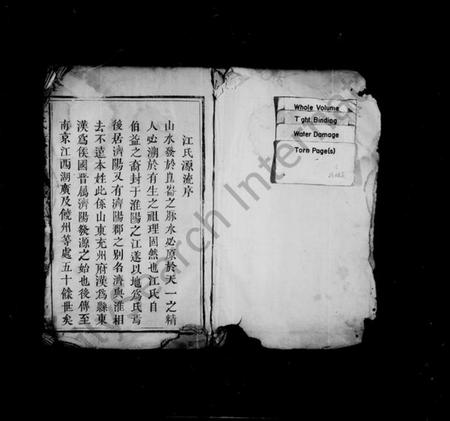 江氏源流序
山水發於崑崙之脉水必原於天一之精
人必溯於有生之祖理固然也江氏自
伯益之裔封于淮陽之江遂以地為氏焉
後居濟陽又有濟陽郡之别名濟與淮相
去不遠本姓此係山東兖州府漢為縣東
漢為侯國晋属濟陽發源之始也後傳至
南京江西湖廣及饒州等處五十餘世矣
Whole Volume
Tight Binding
Water Damage
Torn Page(s)